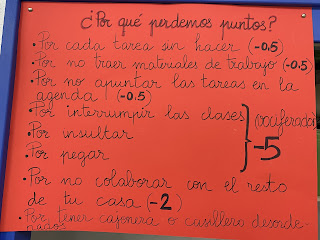 ¿Por qué perdemos puntos?
• Por cada tarea sin hacer (-0.5)
• Por no traer materiales de trabajo (-0.5)
• Por no apuntar las tareas en la
agenda (-0.5)
• Por interrumpir las clases (vociferador)
• Por insultar
-5
• Por pegar
• Por no colaborar con el resto
de tu casa (-2)
• Por tener cajonera o casillero desorde-
nados